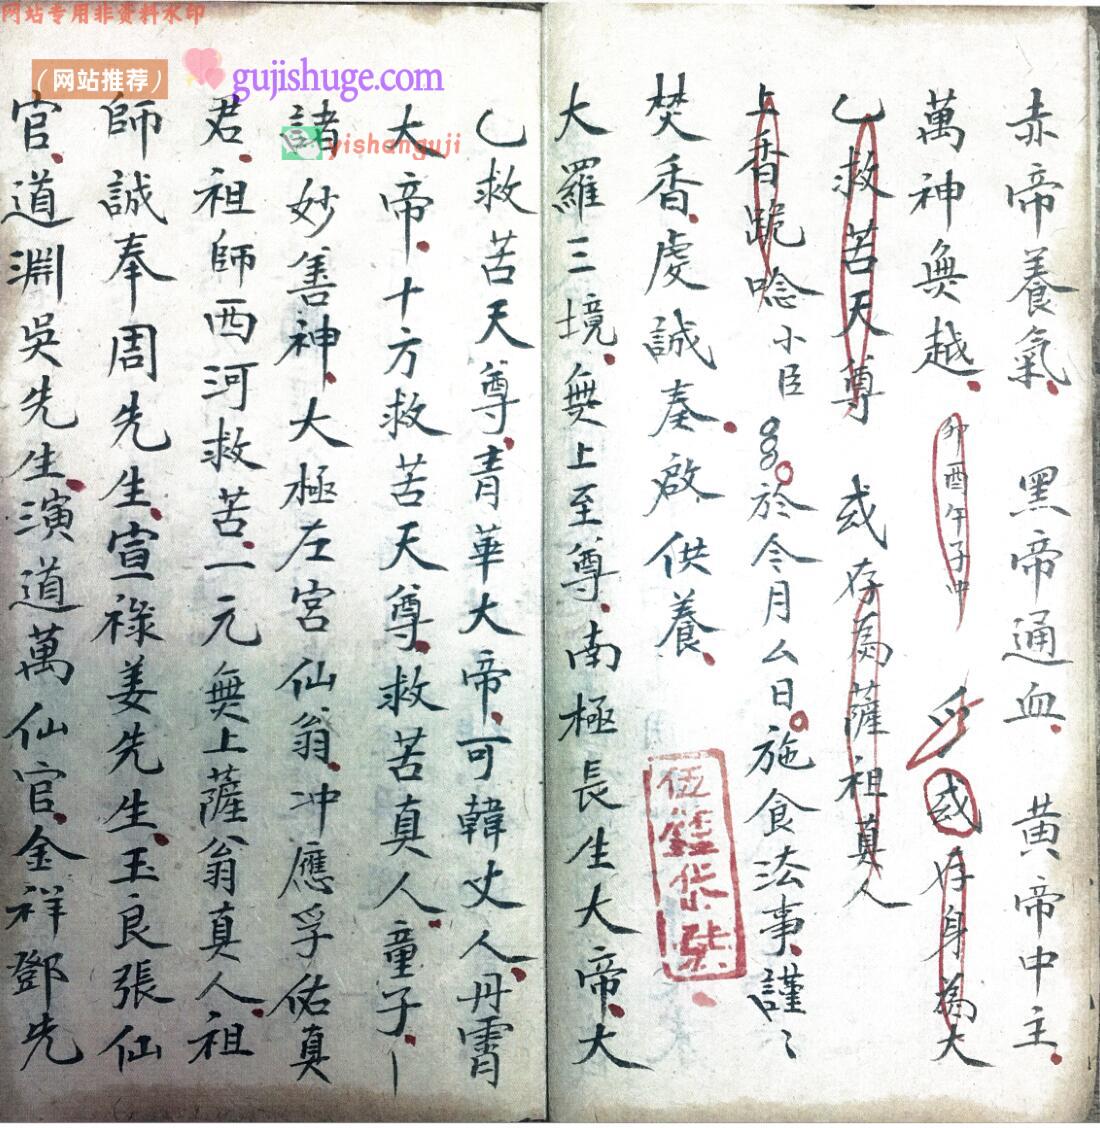 网站专用非资料水印
（网站推荐）
gujishuge.com
yishanguji
赤帝養氣黑帝通血黃帝中主
萬神無越卯酉午子中或存身為大
乙救苦天尊或存為薩祖真人
上香跪唸小臣於今月厶日施食法事謹〻
焚香虔誠奏啟供養
大羅三境無上至尊南極長生大帝大
乙救苦天尊青華大帝可韓丈人丹霄
大帝十方救苦天尊救苦真人童子一
諸妙善神大極左宮仙翁冲應孚佑真
君祖師西河救苦一元無上薩翁真人祖
師誠奉周先生宣祿姜先生玉良張仙
官道淵吳先生演道萬仙官金祥鄧先